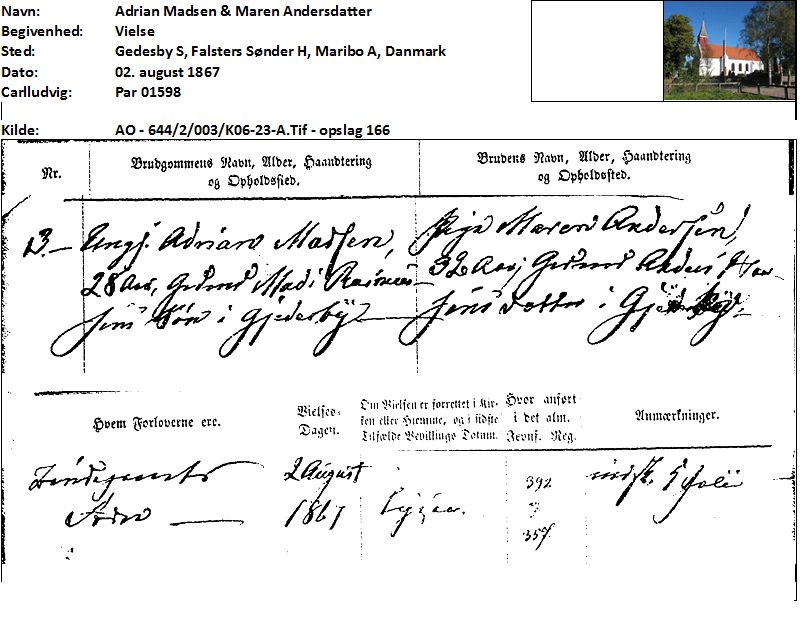 Navn: Adrian Madsen & Maren Andersdatter
Begivenhed: Vielse
Sted: Gedesby S, Falsters Sønder H, Maribo A, Danmark
Dato: 02. august 1867
Carlludvig: Par 01598
Kilde: AO - 644/2/003/K06-23-A.Tif - opslag 166
Nr.
Brudgommens Navn, Alder, Haandtering
og Opholdssted.
Brudens Navn, Alder, Haandtering
og Opholdsted.
13.
Ungk. Adrian Madsen,
28 Aar, Grdmd Mads Rasmus-
sens Søn i Gjedesby
Pige Maren Andersen,
32 Aar, Grdmd Anders Han-
sens Datter i Gjedesby.
Hvem Forloverne ere.
Vielses-
Dagen.
Om Vielsen er forrettet i Kir-
ken eller Hjemme, og i sidste
Tilfælde Bevillings Datum.
Hvor anført
i det alm.
Jevnf. Reg.
Anmærkninger.
2 August
1867
392
357